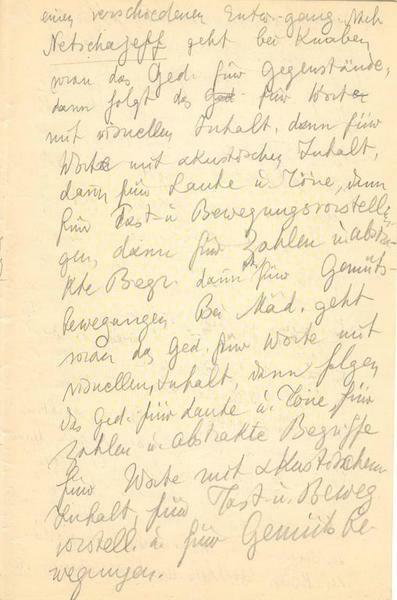 einen verschiedenen Entw.-gang. Nach
Netschajeff geht bei Knaben
voran das Ged. für Gegenstände,
dann folgt das für Worte
mit visuellen Inhalt, dann für
Worte mit akustischen Inhalt,
dann für Laute u. Töne, dann
für Tast- u. Bewegungsvorstellun-
gen, dann für Zahlen u. abstra-
kte Begr. dann für Gemüts-
bewegungen. Bei Mäd. geht
voran das Ged. für Worte mit
visuellen Inhalt, dann folgen
das Ged. für Laute u. Töne, für
Zahlen u. abstrakte Begriffe
für Worte mit akustischem
Inhalt, für Tast- u. Beweg
vorstell. u. für Gemütsbe-
wegungen.